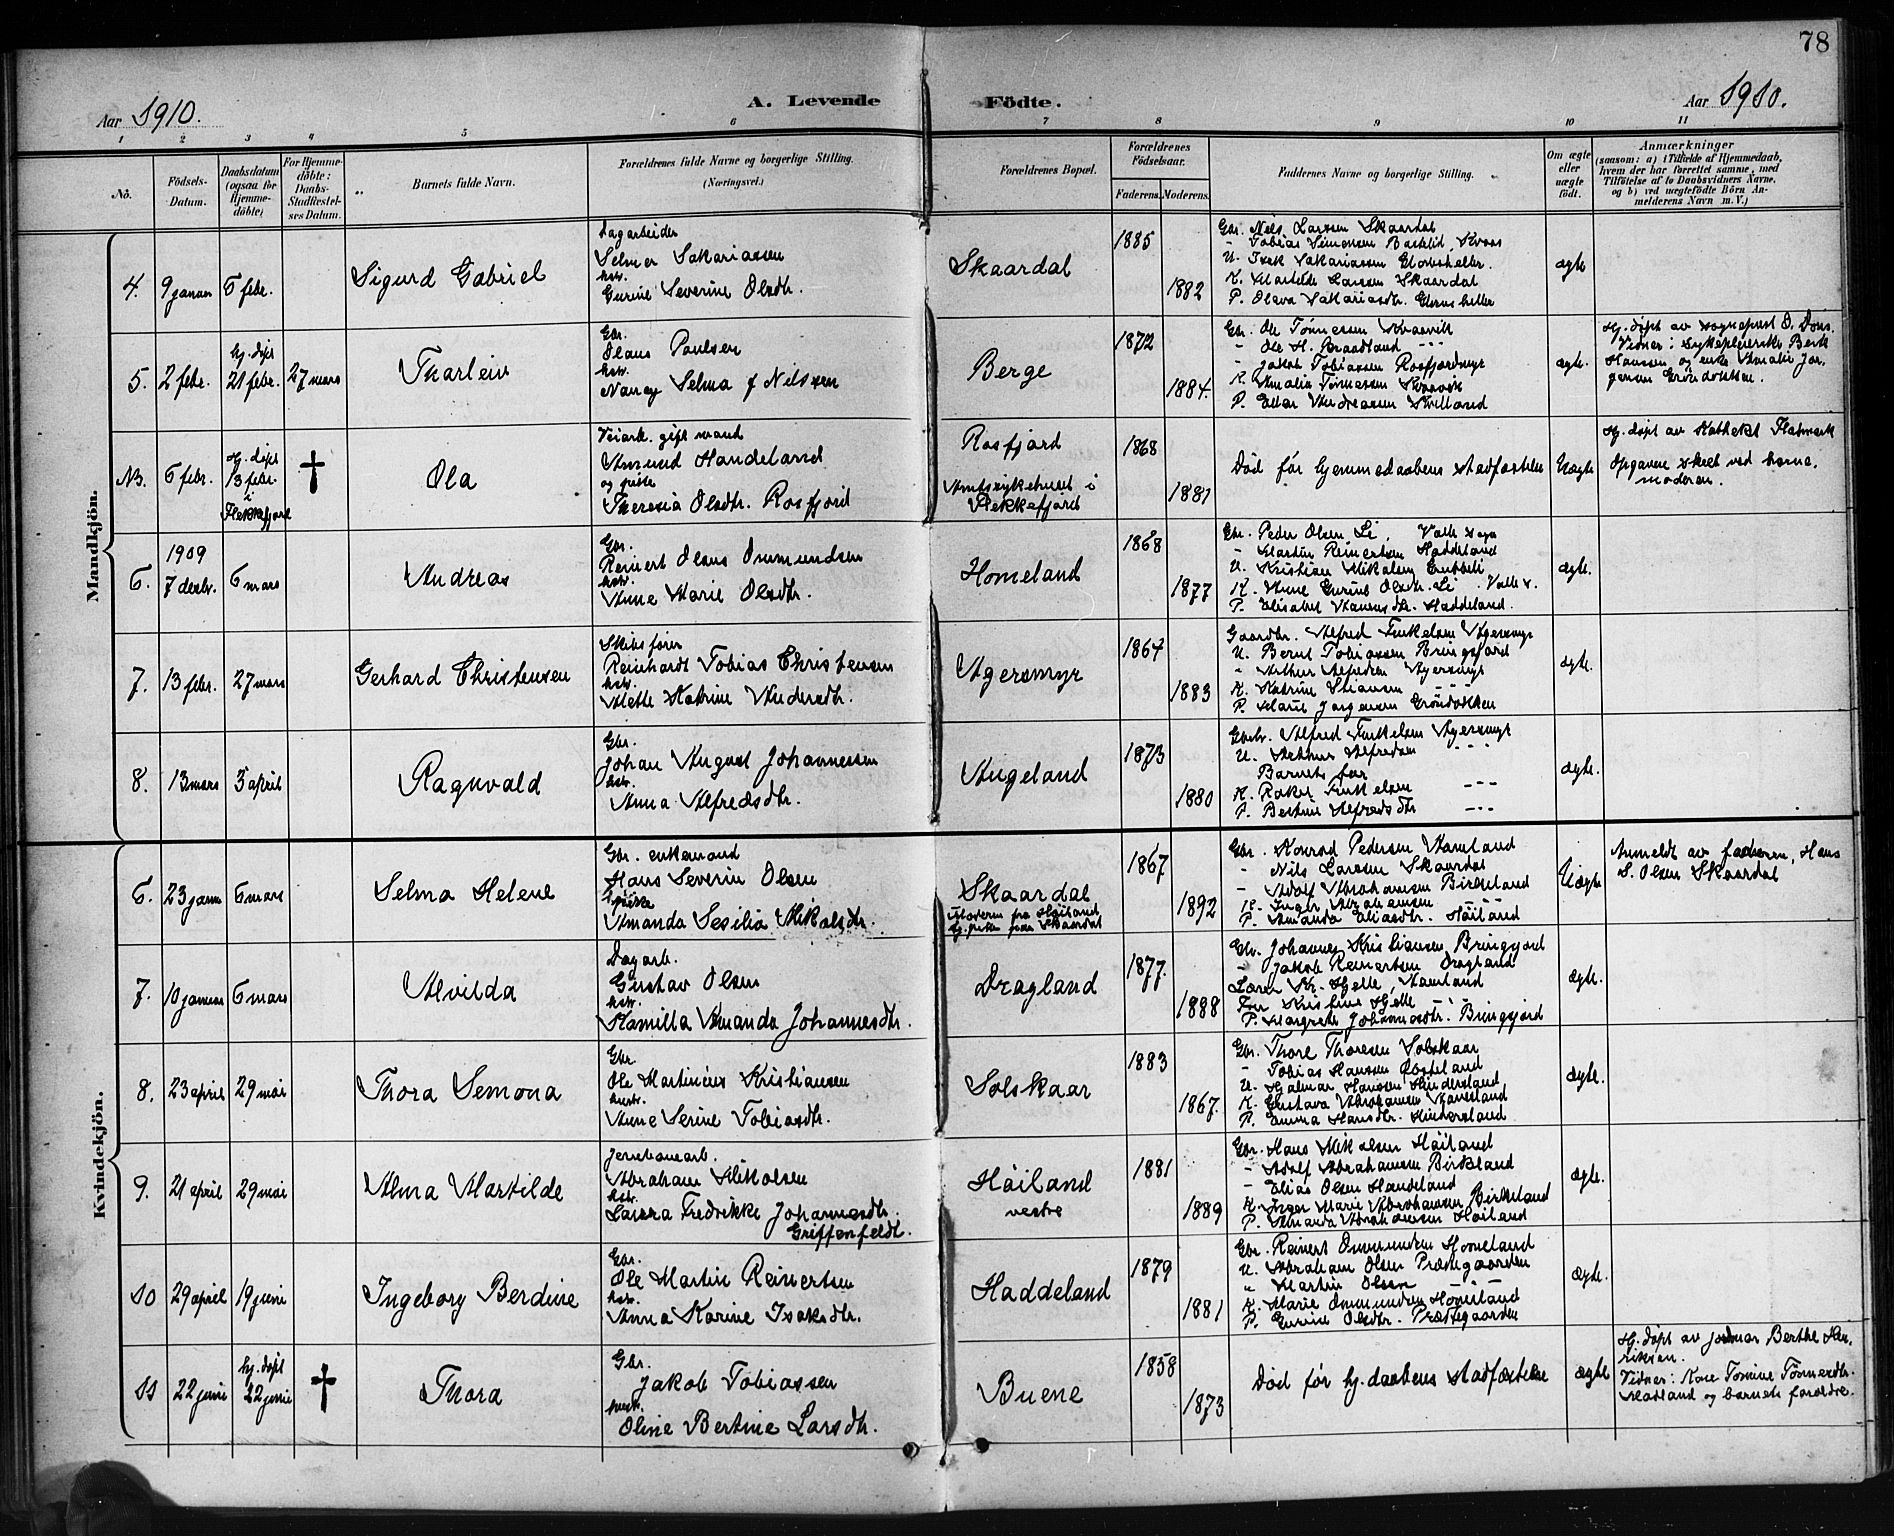 78
Aar 1910.
A. Levende Födte.
Aar 1910.
1 2 3 4 5 6 7 8 9 10 11
No.
Födsels-Datum.
Daabsdatum (ogsaa for Hjemme-döbte)
For Hjemme-döbte: Daabs-Stadfæstel-ses Datum.
Barnets fulde Navn.
Forældrenes fulde Navne og borgerlige Stilling.
(Næringsvei.)
Forældrenes Bopæl.
Forældrenes Födselsaar.
Faderens. Moderens.
Faddernes Navne og borgerlige Stilling.
Om ægte eller uægte födt.
Anmærkninger
(saasom: a) i Tilfælde af Hjemmedaab,
hvem der har forrettet samme, med
Tilföielse af to Daabsvidners Navne,
og b) ved uægtefödte Börn An-
melderens Navn m. V.)
Mandkjön.
4. 9 januar 6 febr.
Sigurd Gabriel
Dagarbeider
Selmer Sakariassen
hstr.
Gurine Severine Olsdtr.
Skaardal
1885
1882
Gbr. Nils Larsen Skaardal
- Tobias Simonsen Barklid, Kvaas
U. Isak Sakariassen
K. Mathilde Larsen Skaardal
P. Olava Sakariasdtr.
ægte
5. 2 febr. hj. døpt 21 febr. 27 mars
Tharleiv
Gbr.
Olaus Paulsen
hstr.
Nancy Selma f Nilssen
Berge
1872
1884.
Gbr. Ole Tønnessen Kvavik
- Ole H. Braadland - - -
- Jakob Tobiassen Rosfjordmyr
K. Amalia Tønnessen Kvavik
P. Ellen Andreassen Kvilland
ægte.
Hj. døpt av sogneprest O. Dons.
Vidner: sykepleierske Berit
Hansen og enke Amalie Jør-
gensen Grøndokken.
Nb. 6 febr. hj. døpt 13 febr. i Flekkefjord †
Ola
Veiarb. gift mand
Amund Handeland
og pike
Theresia Olsdtr. Rosfjord
Rosfjord
Amtssykehuset i
Flekkefjord
1868
1881
Død før hjemmedaabens stadfæstelse
Uægte
Hj. døpt av Katheket Flatmark
Opgaven skeet ved barne-
moderen.
6. 1909 7 decbr. 6 mars
Andreas
Gbr.
Reinert Olaus Ommundsen
hstr.
Anne Marie Olsdtr.
Homeland
1868
1877
Gbr. Peder Olsen Li, Valle sogn
- Martin Reinertsen Haddeland
U. Kristian Mikalsen Grubbeli
K. Anne Gurine Olsdtr. Li. Valle s.
P. Elisabet Hansdtr. Haddeland.
ægte.
7. 13 febr. 27 mars
Gerhard Christensen
Skibsfører
Reinhardt Tobias Christensen
hstr.
Mette Katrine Andersdtr.
Agersmyr
1864
1883
Gaardbr. Alfred Torkelsen Agersmyr
U. Bernt Tobiassen Bringsjord
- Arthur Alfredsen Agersmyr
K. Katrine - - -
P. Marie Jørgensen Grøndokken
ægte.
8. 13 mars 3 april
Ragnvald
Gbr.
Johan August Johannessen
hstr.
Anna Alfredsdtr.
Augeland
1873
1880
Gbr. Alfred Torkelsen Agersmyr
U. Arthur Alfredsen - - -
Barnets far
K. Rakel Torkelsen - - -
P. Bertine Alfredsdtr - - -
ægte.
Kvindekjön.
6. 23 janu 6 mars
Selma Helene
Gbr. enkemand
Hans Severin Olsen
og pike
Amanda Sesilia Mikalsdtr.
Skaardal
Moderen fra Høiland
tj. pike paa Skaardal
1867
1892
Gbr. Konrad Pedersen Aamland
- Nils Larsen Skaardal
- Adolf Abrahamsen Birkeland
K. Inger Abrahamsen - - -
P. Amanda Eliasdtr. Høiland
Uægte
Anmeldt av faderen, Hans
S. Olsen Skaardal
7. 10 januar 6 mars
Alvilda
Dagarb.
Gustav Olsen
hstr.
Kamilla Amanda Johannesdtr.
Dragland
1877.
1888
Gbr. Johannes Kristiansen, Bringsjord
- Jakob Reinertsen Dragland
Lærer Kr. Hjelle, Aamland
Fru Kristine Hjelle - - -
P. Margrete Johannesdtr. Bringsjord
ægte.
8. 23 april 29 mai
Thora Semona
Gbr
Ole Martinius Kristiansen
hustr.
Anne Serine Tobiasdtr.
Solskaar
1883
1867.
Gbr. Thore Thoresen Solskaar
- Tobias Hanssen
U. Hjalmar Hanssen Hindersland
K. Gustava Abrahamsen
P. Emma Hansdtr. Hindersland
ægte.
9. 21 april 29 mai
Alma Mathilde
Jernbanearb.
Abraham Mikalsen
hstr.
Laura Fredrikke Johannesdtr.
Griffenfeldt.
Høiland
vestre
1881
1889
Gbr. Hans Mikalsen Høiland
- Adolf Abrahamsen Birkeland
- Elias Olsen Handeland
K. Inger Marie Abrahamsen Birkeland
P. Amanda Abrahamsen Høiland
ægte.
10 29 april 19 juni
Ingeborg Berdine
Gbr.
Ole Martin Reinertsen
hstr.
Anna Karine Isaksdtr.
Haddeland
1879
1881
Gbr. Reinert Ommundsen Homeland
U. Abraham Olsen Præstegaarden
" Martin Olsen - - -
K. Marie Ommundsen Homeland
P. Gurine Olsdtr. Præstegaarden
ægte.
11 22 juni hj. døpt 22 juni †
Thora
Gbr.
Jakob Tobiassen
hustr.
Oline Bertine Larsdtr.
Buene
1858
1873
Død før hj. daabens stadfæstelse
ægte
Hj. døpt av jordmor Berthe Hen-
riksen.
Vidner: Kone Tomine Tønnesdtr.
og barnets forældre.